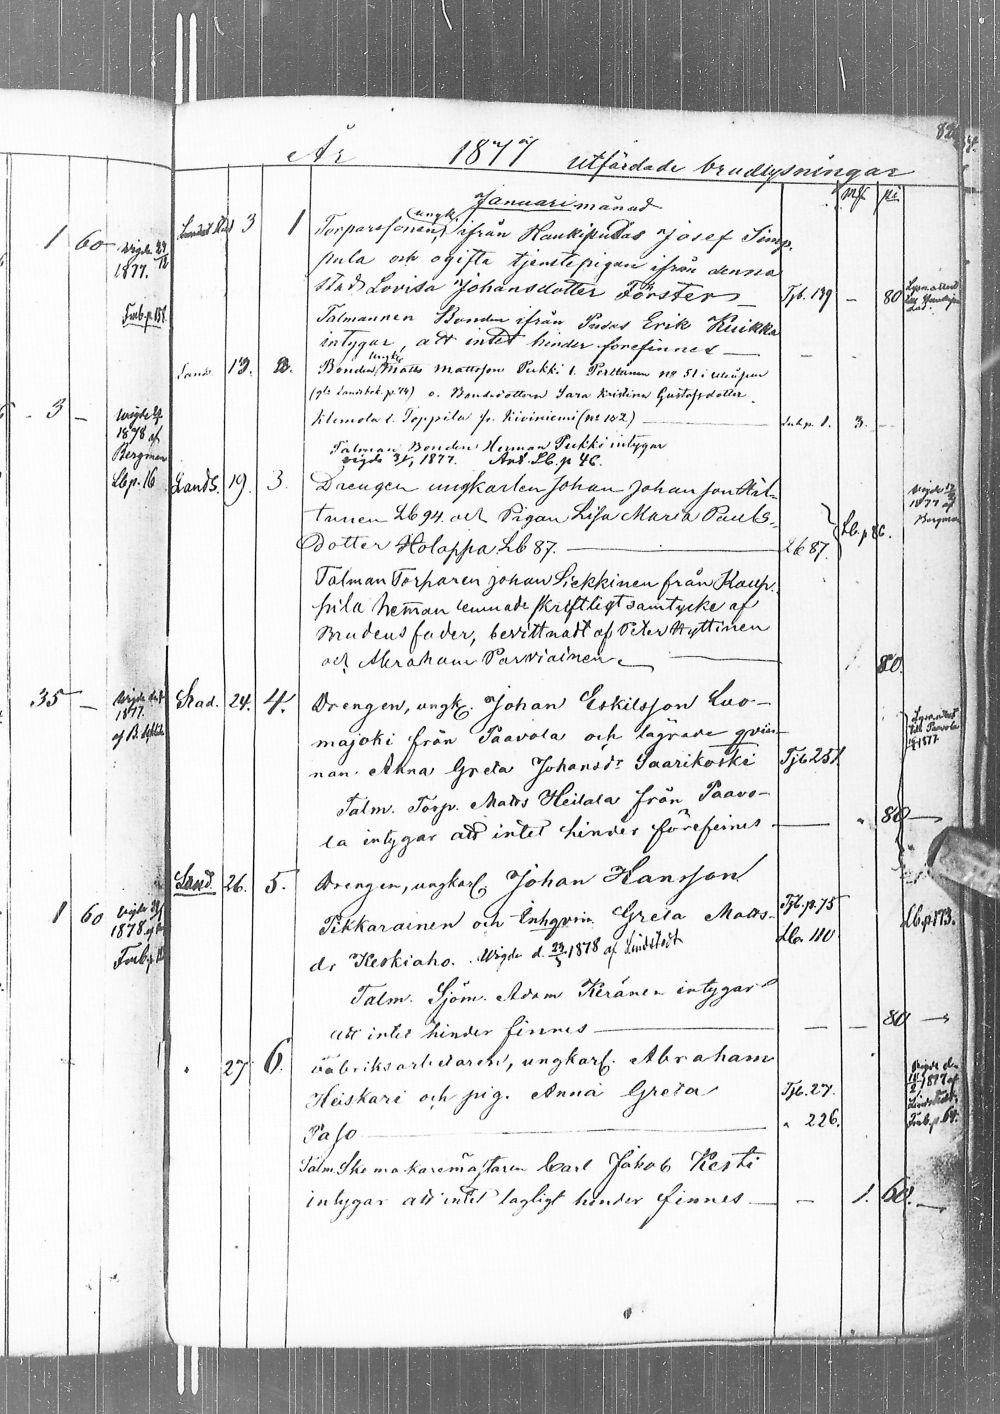 År 1877 utfärdade brudlysningar
Januari månad
1 60
Wigde
1877.
3 1 Torparesonen, ungk. ifrån Haukipudas Josef Simp-
pula och ogifta tjenstepigan ifrån denna
stad Lovisa Johansdotter Förster — Tjb. 139 — 80
Talmannen Bonden ifrån Pudas Erik Kuikka
intygar, att intet hinder förefinnes —
Lands 13. 2. Bonden, ungk. Matts Mattsson Pukki l. Perttunen no 51 i
o. Bondedottern Sara Kristina Gustafsdotter
Klemola l. Toppila fr. Kiviniemi (no 102) — 3. —
Talman Bonden Herman Pukki intygar
1877. Ant. Lb. p 46.
3 —
Wigde
1878 af
Bergman
Lb p. 16
Lands. 19. 3. Drengen ungkarlen Johan Johansson
Lb 94. och Pigan Lisa Maria Pauls-
dotter Holappa Lb 87. — Lb 87. Lb. p 86.
1877 af
Bergman
Talman Torparen Johan Siekkinen från Kaup-
pila hemman lemnade skriftligt samtycke af
brudens fader, bevittnadt af Peter Hyttinen
och Abraham Parviainen — 80.
35 —
1877.
Stad. 24. 4. Drengen, ungk. Johan Eskilsson Luo-
majoki från Paavola och lägrade qvin-
nan Anna Greta Johansdr Saarikoski Tjb 251
Lysn. attest
till Paavola
1877
Talm. Torp. Matts Heilala från Paavo-
la intygar att intet hinder förefinnes — 80 —
Land. 26. 5. Drengen, ungkarl. Johan Hansson
1 60
Wigde
1878
Pikkarainen och Enkqvin. Greta Matts- Tjb. p. 75
dr Keskiaho. Wigde d. 1878 af Lindstedt Lb. 110
Lb. p 173.
Talm. Sjöm. Adam Keränen intygar
att intet hinder finnes — — — 80 —
27 6. Fabriksarbetaren, ungkarl. Abraham
Heiskari och pig. Anna Greta Tjb. 27.
Paso — " 226.
Wigde den
1877 af
Lindstedt.
Talm. Skomakaremästaren Carl Jakob Kesti
intygar att intet lagligt hinder finnes — — 1. 60. —